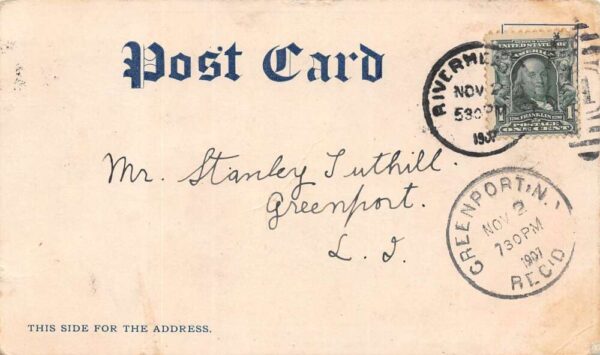 Post Card
RIVERHE
NOV 2
530PM
1907
UNITED STATES OF
AMERICA
FRANKLIN
POSTAGE
1 ONE CENT 1
Mr. Stanley Tuthill.
Greenport.
L. I.
GREENPORT, N.
NOV 2
730PM
1907
REC'D
THIS SIDE FOR THE ADDRESS.